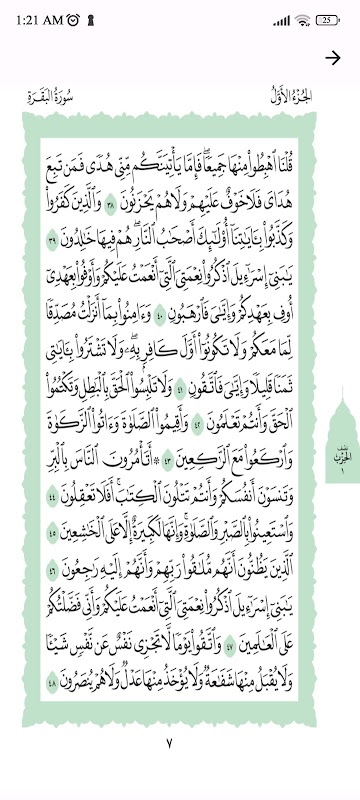 1:21 AM
25
الجُزْءُ الأَوَّلُ
سُورَةُ البَقَرَةِ
قُلْنَا ٱهْبِطُوا۟ مِنْهَا جَمِيعًۭا ۖ فَإِمَّا يَأْتِيَنَّكُم مِّنِّى هُدًۭى فَمَن تَبِعَ
هُدَاىَ فَلَا خَوْفٌ عَلَيْهِمْ وَلَا هُمْ يَحْزَنُونَ ٣٨ وَٱلَّذِينَ كَفَرُوا۟
وَكَذَّبُوا۟ بِـَٔايَـٰتِنَآ أُو۟لَـٰٓئِكَ أَصْحَـٰبُ ٱلنَّارِ ۖ هُمْ فِيهَا خَـٰلِدُونَ ٣٩
يَـٰبَنِىٓ إِسْرَٰٓءِيلَ ٱذْكُرُوا۟ نِعْمَتِىَ ٱلَّتِىٓ أَنْعَمْتُ عَلَيْكُمْ وَأَوْفُوا۟ بِعَهْدِىٓ
أُوفِ بِعَهْدِكُمْ وَإِيَّـٰىَ فَٱرْهَبُونِ ٤٠ وَءَامِنُوا۟ بِمَآ أَنزَلْتُ مُصَدِّقًۭا
لِّمَا مَعَكُمْ وَلَا تَكُونُوٓا۟ أَوَّلَ كَافِرٍۭ بِهِۦ ۖ وَلَا تَشْتَرُوا۟ بِـَٔايَـٰتِى
ثَمَنًۭا قَلِيلًۭا وَإِيَّـٰىَ فَٱتَّقُونِ ٤١ وَلَا تَلْبِسُوا۟ ٱلْحَقَّ بِٱلْبَـٰطِلِ وَتَكْتُمُوا۟
ٱلْحَقَّ وَأَنتُمْ تَعْلَمُونَ ٤٢ وَأَقِيمُوا۟ ٱلصَّلَوٰةَ وَءَاتُوا۟ ٱلزَّكَوٰةَ
وَٱرْكَعُوا۟ مَعَ ٱلرَّٰكِعِينَ ٤٣ ۞ أَتَأْمُرُونَ ٱلنَّاسَ بِٱلْبِرِّ
وَتَنسَوْنَ أَنفُسَكُمْ وَأَنتُمْ تَتْلُونَ ٱلْكِتَـٰبَ ۚ أَفَلَا تَعْقِلُونَ ٤٤
وَٱسْتَعِينُوا۟ بِٱلصَّبْرِ وَٱلصَّلَوٰةِ ۚ وَإِنَّهَا لَكَبِيرَةٌ إِلَّا عَلَى ٱلْخَـٰشِعِينَ ٤٥
ٱلَّذِينَ يَظُنُّونَ أَنَّهُم مُّلَـٰقُوا۟ رَبِّهِمْ وَأَنَّهُمْ إِلَيْهِ رَٰجِعُونَ ٤٦
يَـٰبَنِىٓ إِسْرَٰٓءِيلَ ٱذْكُرُوا۟ نِعْمَتِىَ ٱلَّتِىٓ أَنْعَمْتُ عَلَيْكُمْ وَأَنِّى فَضَّلْتُكُمْ
عَلَى ٱلْعَـٰلَمِينَ ٤٧ وَٱتَّقُوا۟ يَوْمًۭا لَّا تَجْزِى نَفْسٌ عَن نَّفْسٍۢ شَيْـًۭٔا
وَلَا يُقْبَلُ مِنْهَا شَفَـٰعَةٌۭ وَلَا يُؤْخَذُ مِنْهَا عَدْلٌۭ وَلَا هُمْ يُنصَرُونَ ٤٨
نصف
الحزب
١
٧